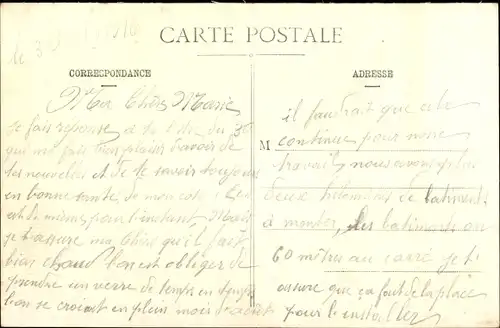 CARTE POSTALE
CORRESPONDANCE
ADRESSE
Ma Chère Marie
je fais réponse à ta lettre du 30
qui me fait bien plaisir d'avoir de
tes nouvelles et de te savoir toujours
en bonne santé de mon coté
est de même pour l'instant Mais
je t'assure ma Chère qu'il fait
bien chaud l'on est obliger de
prendre un verre de temps en temps
l'on se croirait en plein mois d'aout
il faudrait que cela
M
continue pour notre
travail nous avons plus
deux kilomètres de batiments
à monter, les batiments on
60 mètres au carré je t'
assure que ça faut de la place
pour l'installer